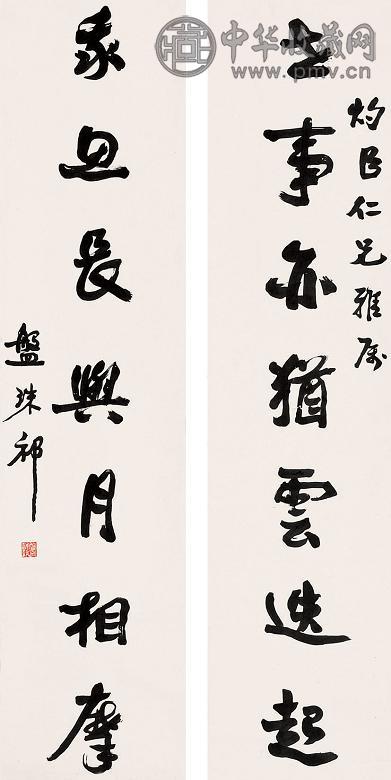 中华收藏网
www.pmv.cn
灼臣仁兄雅属
世事亦猶雲迭起
我思長與月相摩
盤珠祁